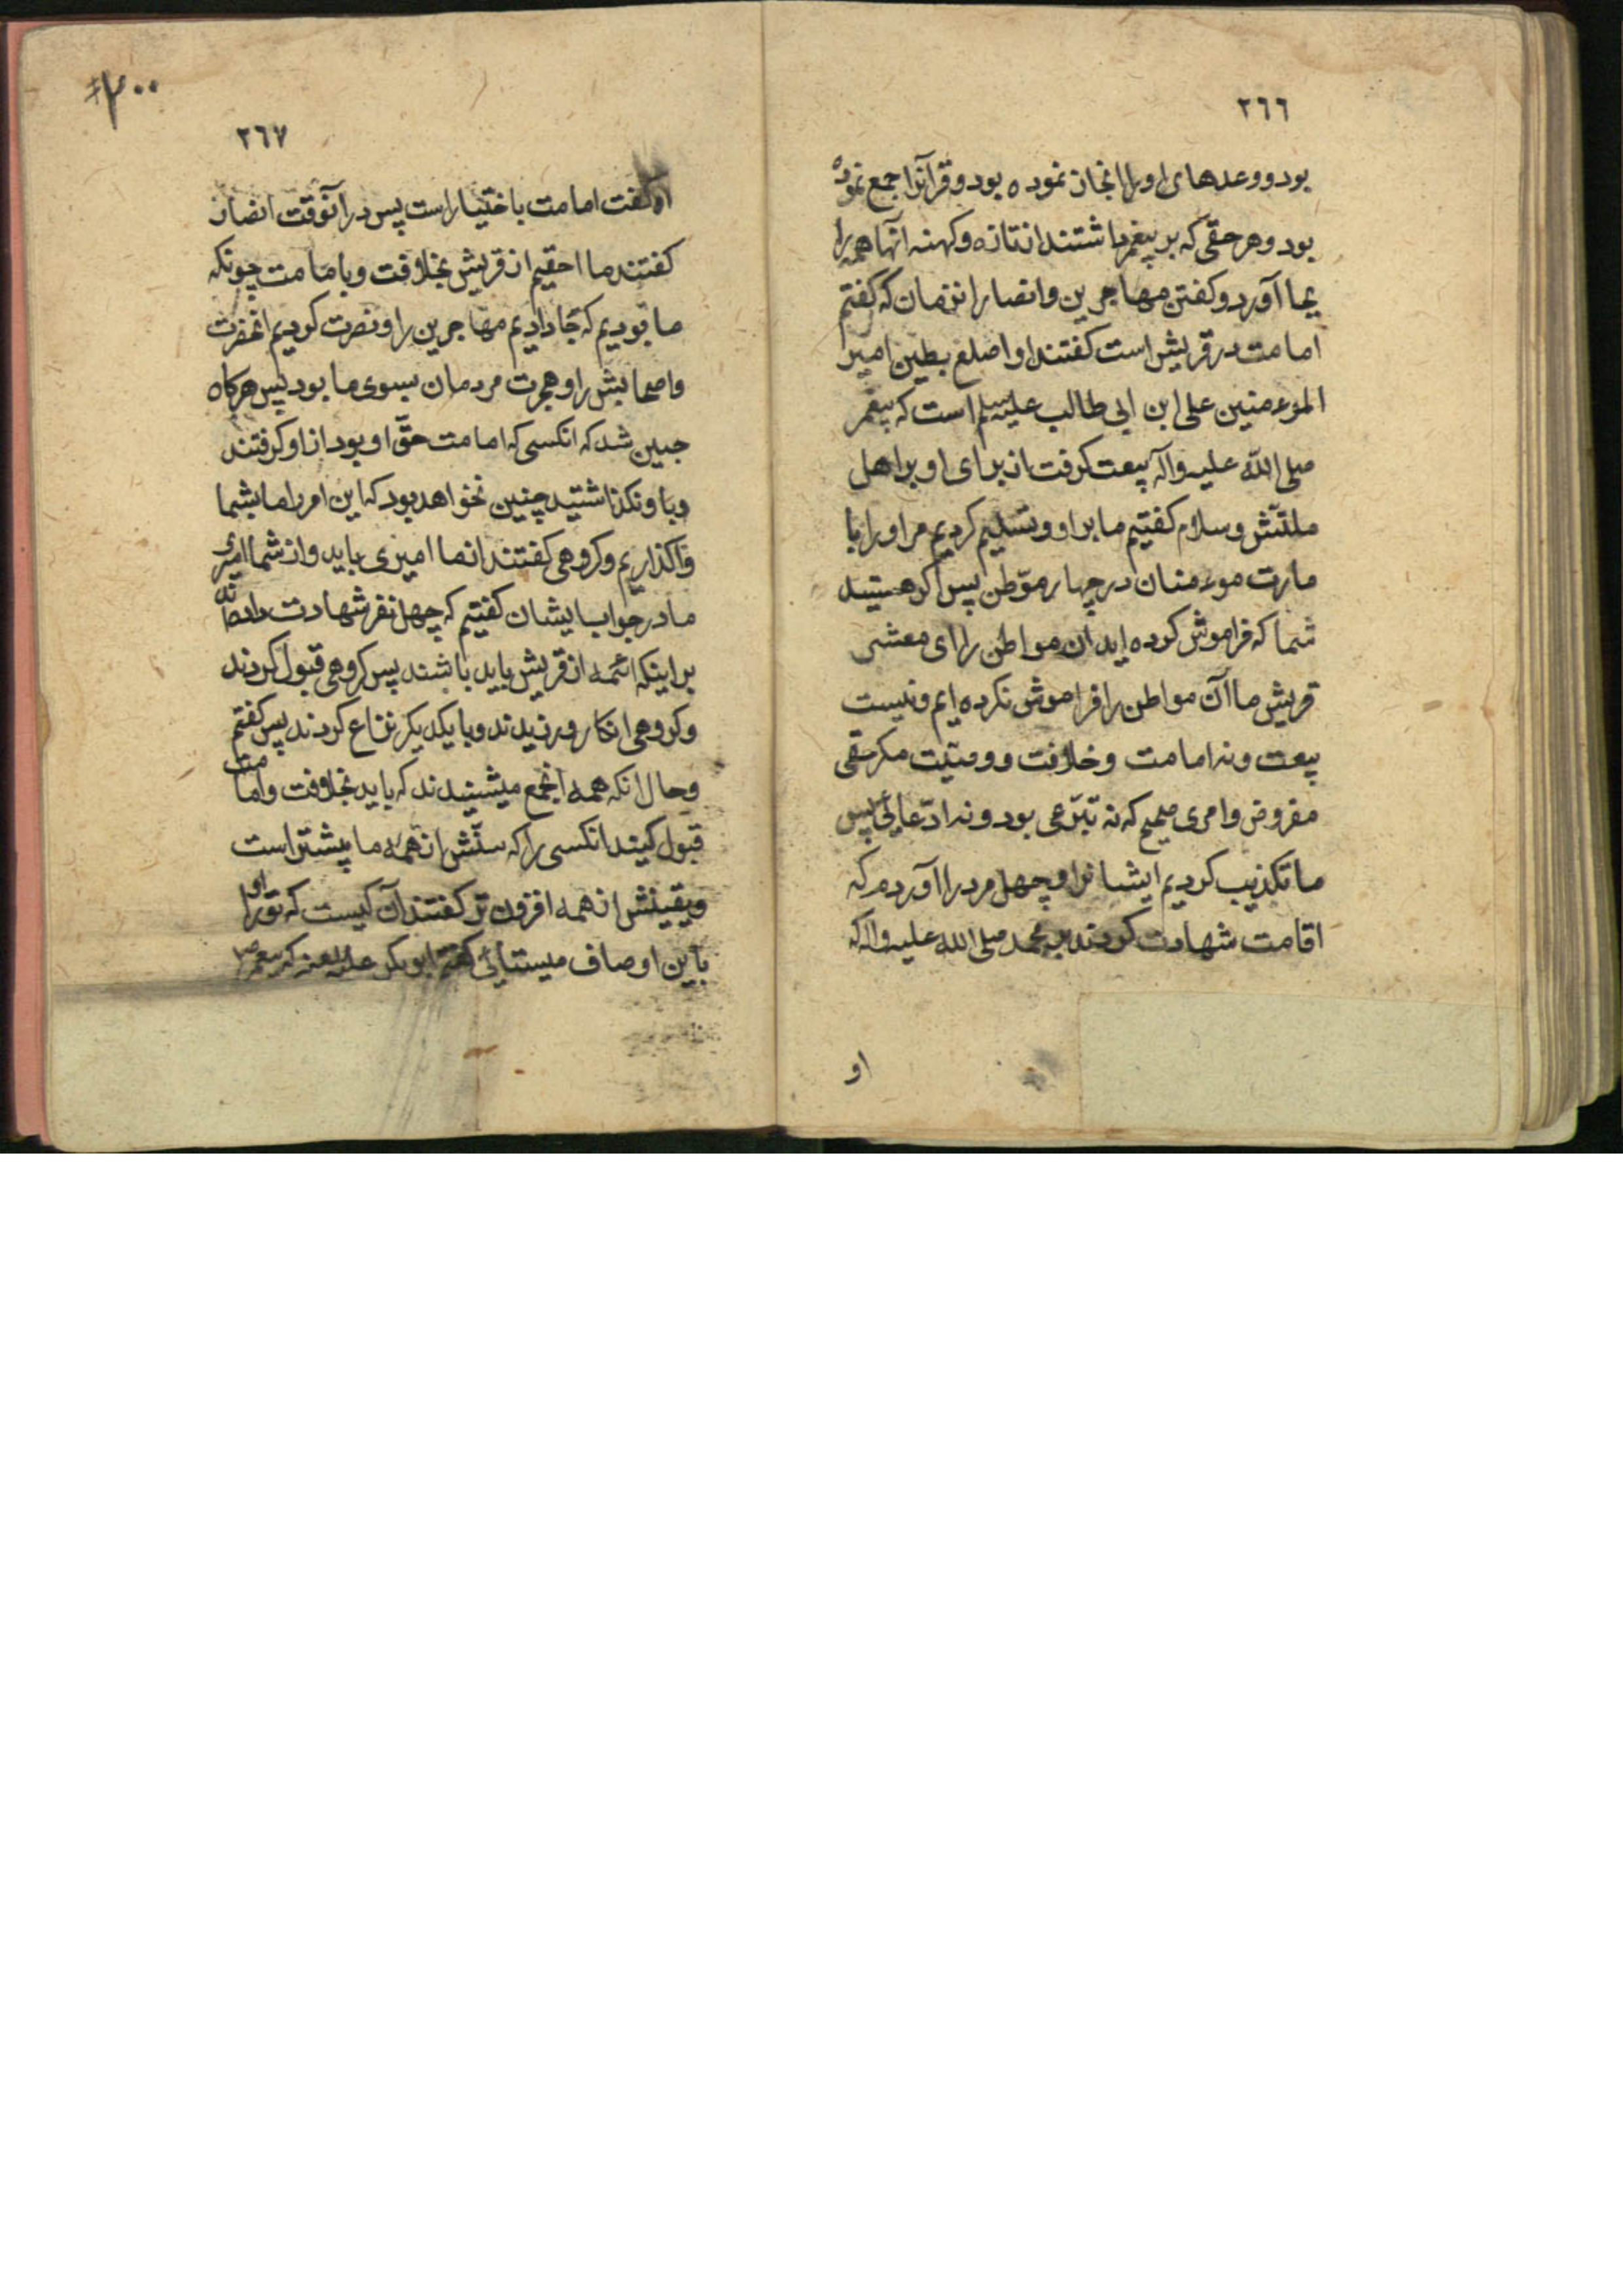 ٢٦٦
بود و وعدهای او را انجاز نموده بود و قرآنرا جمع نموده
بود و هر حقی که بر پیغمبر داشتند از تازه و کهنه آنها همه را
بجا آورد و کفتن مهاجرین و انصار از زمان که کفتم
امامت در قریش است کفتند او اصلع بطین امیر
المؤمنین علی ابن ابی طالب علیه سلم است که پیغمبر
صلی الله علیه وآله بیعت کرفت از برای او بر اهل
ملتش و سلام کفتیم ما بر او و تسلیم کردیم مر او را با
مارت مؤمنان در چهار موطن پس اکر هستید
شما که فراموش کرده اید ان مواطن را ای معشر
قریش ما آن مواطن را فراموش نکرده ایم و نیست
بیعت و نه امامت و خلافت و وصیت مکر حقی
مفروض و امری صحیح که نه تبرعی بود و نه ادعایی پس
ما تکذیب کردیم ایشانرا و چهل مرد را آوردم که
اقامت شهادت کردند بر محمد صلی الله علیه واله که
او
٣٠٠
٢٦٧
او کفت امامت باختیار است پس در آنوقت انصار
کفتند ما احقیم از قریش بخلافت و بامامت چونکه
ما بودیم که جا دادیم مهاجرین را و نصرت کردیم انحضرت
و اصحابش را و هجرت مردمان بسوی ما بود پس هرکاه
جبین شد که انکسی که امامت حق او بود از او کرفتند
و باو نکذاشتید چنین نخواهد بود که این امر را ما بشما
واکذاریم و کروهی کفتند از ما امیری باید و از شما امیری
ما در جواب ایشان کفتیم که چهل نفر شهادت دادند
بر اینکه ائمه از قریش باید باشند پس کروهی قبول کردند
و کروهی انکار ورزیدند و با یکدیکر نزاع کردند پس کفتم
و حال انکه همه انجمع میشنیدند که باید بخلافت و امامت
قبول کنید انکسی را که سنش از همه ما بیشتر است
و یقینش از همه افزون تر کفتند آن کیست که تو او را
باین اوصاف میستایی کفتم ابوبکر علیه لعنه که پیغمبر ص